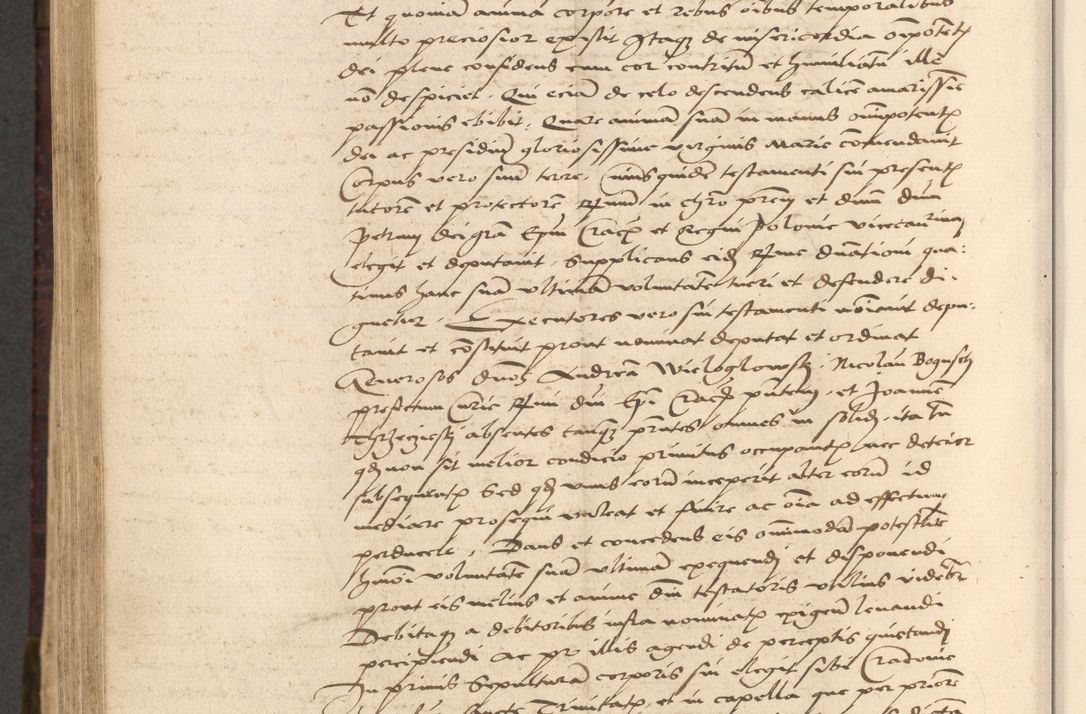 Et quoniam anima corpore et rebus oibus temporalibus
multo preciosior existit Itaqz de misericordia oipotetis
dei plene confidens cum cor contritu et humiliatu ille
no despiciet. Qui eciam de celo descendens calice amarissie
passionis ebibit, Quare animam suam in manus omipotentis
dei ac presidium gloriosissime virginis Marie comendavit
Corpus vero suu terre. Cuiusquide testamenti sui presentis
tutorem et protectore Rsmu in chro prem et dnm dnm
Petrum dei gra Epum Crac et Regni Polonie vicecan
elegit et deputavit. Supplicans eidem Rsme dnationi qua:
tinus hanc sua ultimam voluntatem tueri et defendere di.
gnetur. Executores vero sui testamenti noiavit depu:
tavit et constituit prout nominat deputat et ordinat
Generosos dnos Andream Wieloglowski. Nicolau Bogusch
prefectum Curie Rsmi dni Epi Crac pntem. et Joannem
absentes tanqz pntes omnes in solidu ita tn
qd non sit melior condicio primitus occupantis nec deterior
subsequentis Sed qd unus eoru inceperit alter eoru id
mediare prosequi valeat et finire ac oia ad effectum
perducere, Dans et concedens eis omimodam potestatem
hmoi voluntate sua ultimam exequendi et disponendi
prout eis melius et anime dni testatoris utilius videbr
Debitaqz a debitoribus infra nominatis exigen levandi
percipiendi ac pro illis agendi de perceptis quietandi
In primis Sepulturam corporis sui elegit sibi Cracovie
Sancte Trinitatis, et in capella que per priore